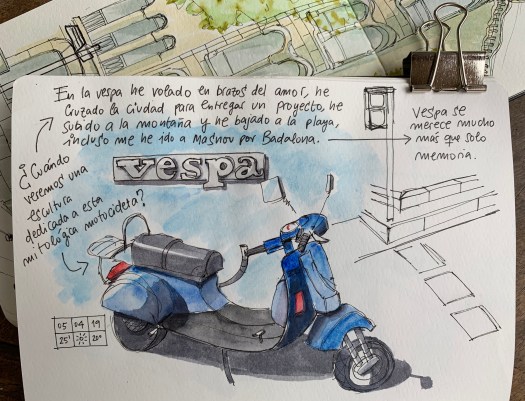 En la vespa he volado en brazos del amor, he
cruzado la ciudad para entregar un proyecto, he
subido a la montaña y he bajado a la playa,
incluso me he ido a Masnou por Badalona.
Vespa se
merece mucho
más que solo
memoria.
¿Cuándo
veremos una
escultura
dedicada a esta
mitológica motocicleta?
vespa
05 04 19
25' 20°